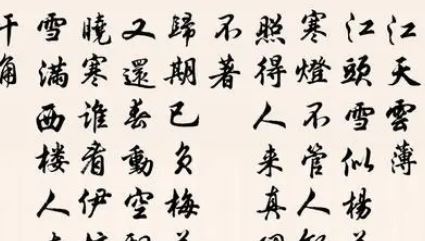 江天雲薄
江頭雪似楊
寒燈不管人
照得人来真
不著
歸期已負梅
又還春動空
曉寒誰看伊
雪滿西楼人
干角